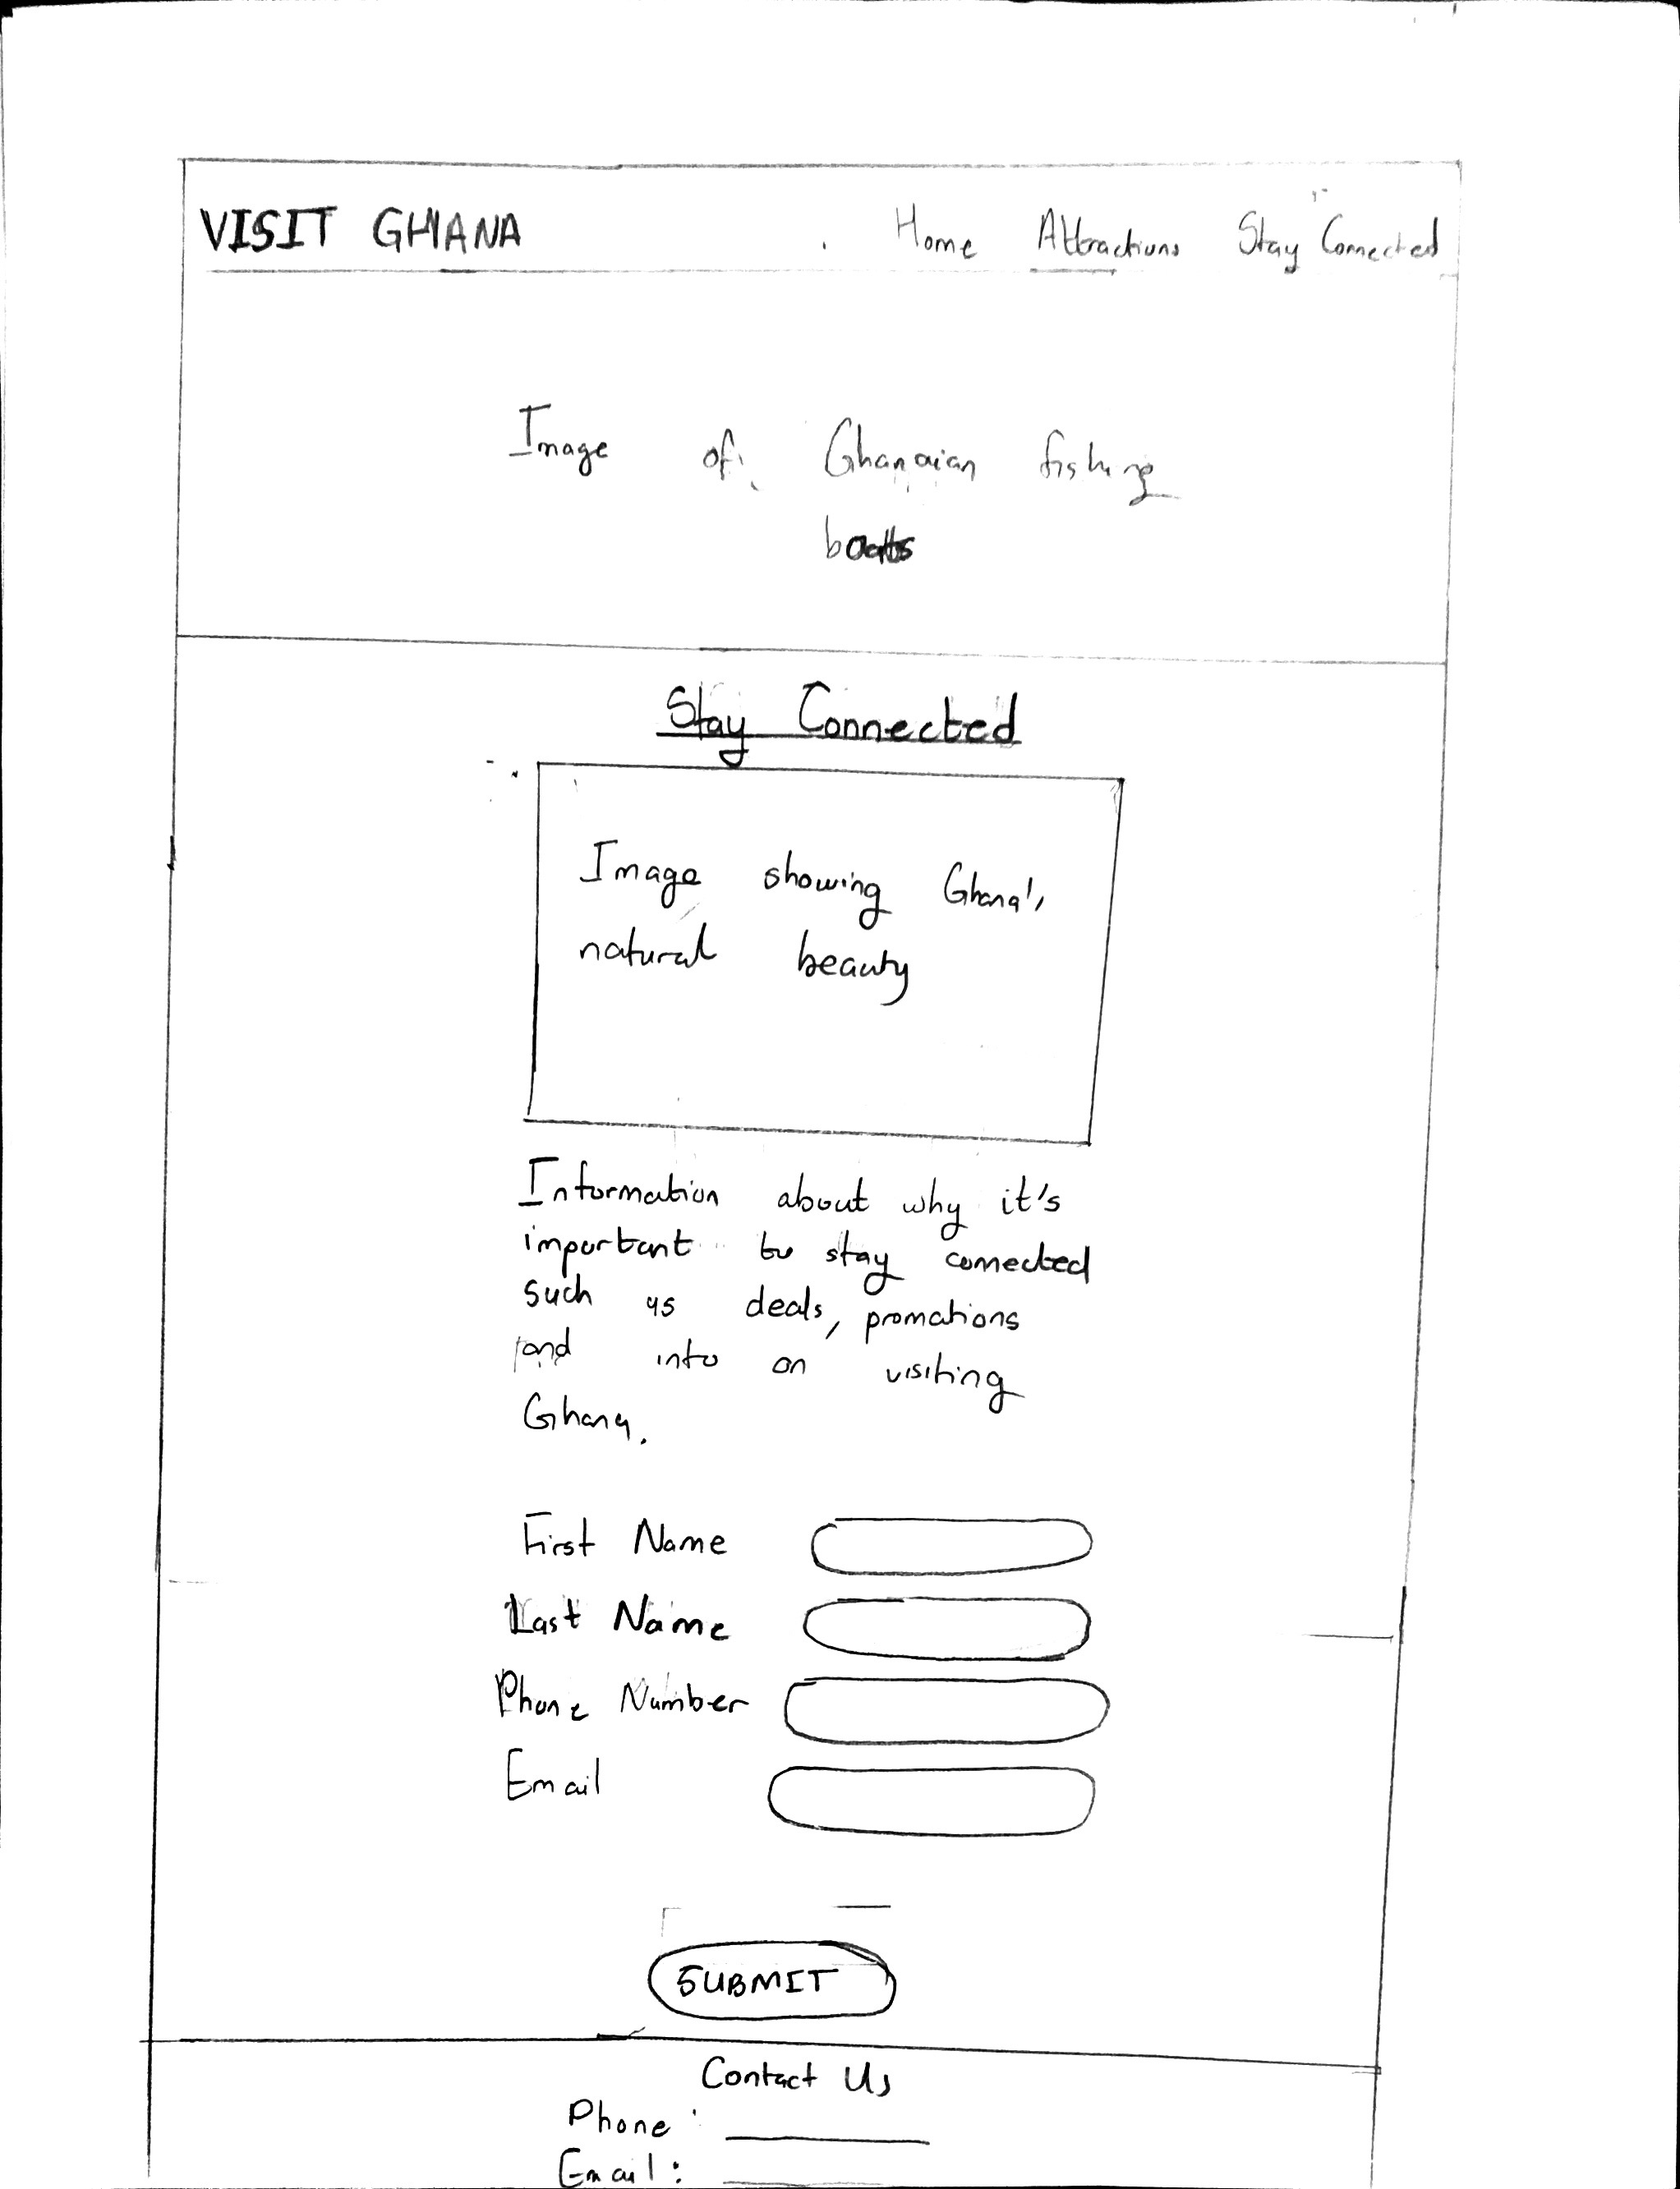 VISIT GHANA
Home Attractions Stay Connected
Image of Ghanaian fishing
boats
Stay Connected
Image showing Ghana's
natural beauty
Information about why it's
important to stay connected
such as deals, promations
and into on visiting
Ghana.
First Name
Last Name
Phone Number
Email
SUBMIT
Contact Us
Phone :
Email :